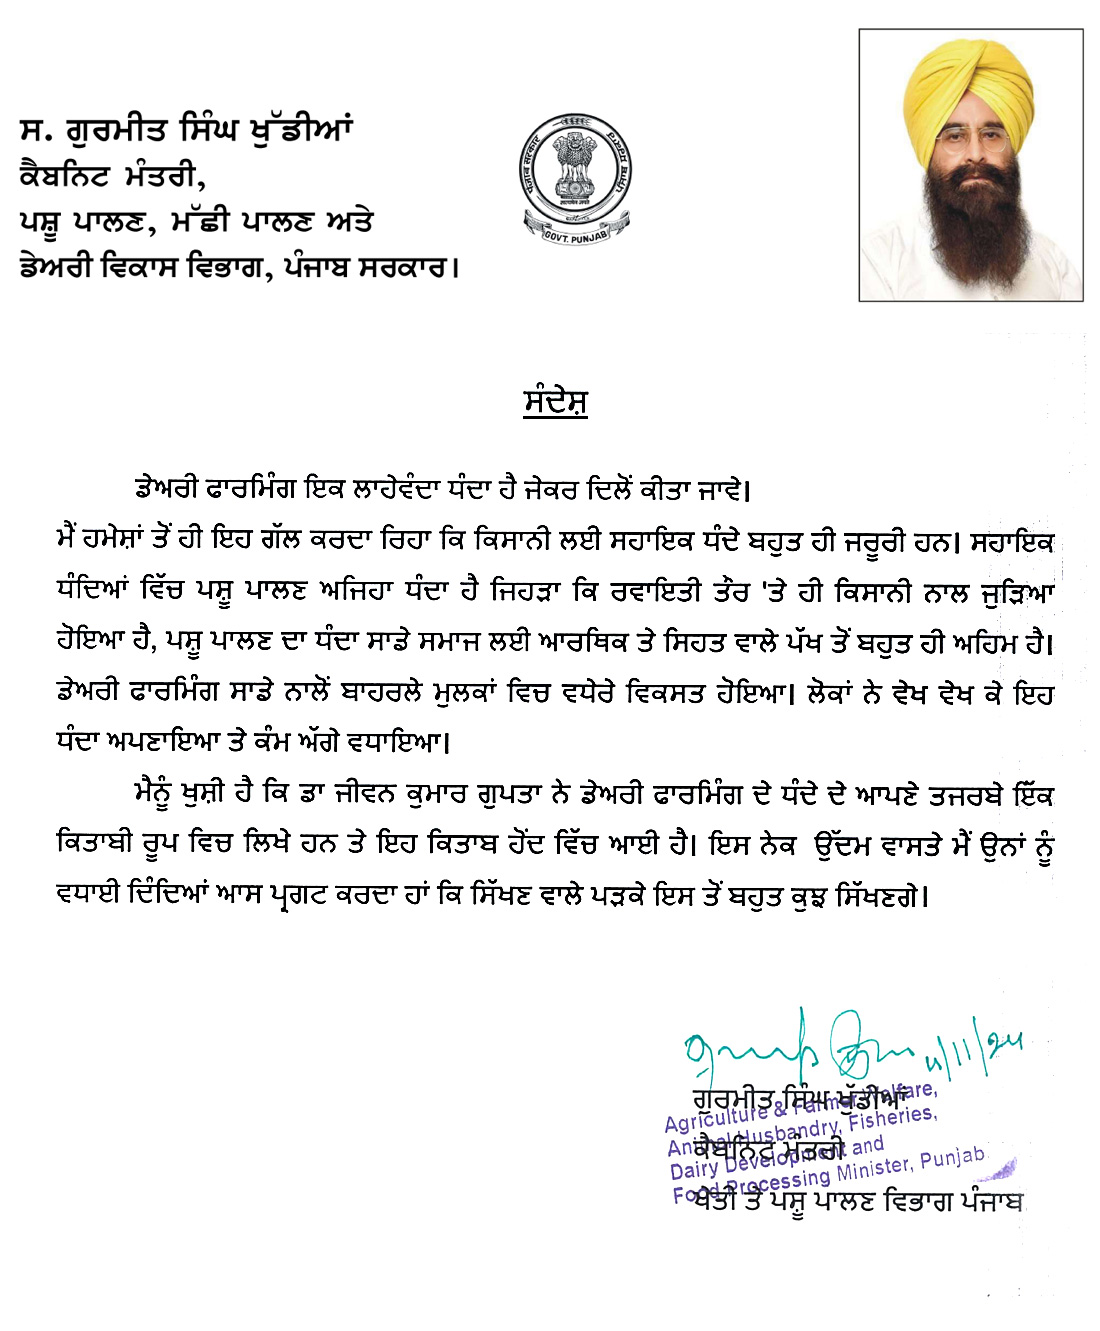 ਸ. ਗੁਰਮੀਤ ਸਿੰਘ ਖੁੱਡੀਆਂ
ਕੈਬਨਿਟ ਮੰਤਰੀ,
ਪਸ਼ੂ ਪਾਲਣ, ਮੱਛੀ ਪਾਲਣ ਅਤੇ
ਡੇਅਰੀ ਵਿਕਾਸ ਵਿਭਾਗ, ਪੰਜਾਬ ਸਰਕਾਰ।
ਪੰਜਾਬ ਸਰਕਾਰ
GOVT. PUNJAB
ਸੰਦੇਸ਼
ਡੇਅਰੀ ਫਾਰਮਿੰਗ ਇਕ ਲਾਹੇਵੰਦਾ ਧੰਦਾ ਹੈ ਜੇਕਰ ਦਿਲੋਂ ਕੀਤਾ ਜਾਵੇ।
ਮੈਂ ਹਮੇਸ਼ਾਂ ਤੋਂ ਹੀ ਇਹ ਗੱਲ ਕਰਦਾ ਰਿਹਾ ਕਿ ਕਿਸਾਨੀ ਲਈ ਸਹਾਇਕ ਧੰਦੇ ਬਹੁਤ ਹੀ ਜਰੂਰੀ ਹਨ। ਸਹਾਇਕ
ਧੰਦਿਆਂ ਵਿੱਚ ਪਸ਼ੂ ਪਾਲਣ ਅਜਿਹਾ ਧੰਦਾ ਹੈ ਜਿਹੜਾ ਕਿ ਰਵਾਇਤੀ ਤੌਰ 'ਤੇ ਹੀ ਕਿਸਾਨੀ ਨਾਲ ਜੁੜਿਆ
ਹੋਇਆ ਹੈ, ਪਸ਼ੂ ਪਾਲਣ ਦਾ ਧੰਦਾ ਸਾਡੇ ਸਮਾਜ ਲਈ ਆਰਥਿਕ ਤੇ ਸਿਹਤ ਵਾਲੇ ਪੱਖ ਤੋਂ ਬਹੁਤ ਹੀ ਅਹਿਮ ਹੈ।
ਡੇਅਰੀ ਫਾਰਮਿੰਗ ਸਾਡੇ ਨਾਲੋਂ ਬਾਹਰਲੇ ਮੁਲਕਾਂ ਵਿਚ ਵਧੇਰੇ ਵਿਕਸਤ ਹੋਇਆ। ਲੋਕਾਂ ਨੇ ਵੇਖ ਵੇਖ ਕੇ ਇਹ
ਧੰਦਾ ਅਪਣਾਇਆ ਤੇ ਕੰਮ ਅੱਗੇ ਵਧਾਇਆ।
ਮੈਨੂੰ ਖੁਸ਼ੀ ਹੈ ਕਿ ਡਾ ਜੀਵਨ ਕੁਮਾਰ ਗੁਪਤਾ ਨੇ ਡੇਅਰੀ ਫਾਰਮਿੰਗ ਦੇ ਧੰਦੇ ਦੇ ਆਪਣੇ ਤਜਰਬੇ ਇੱਕ
ਕਿਤਾਬੀ ਰੂਪ ਵਿਚ ਲਿਖੇ ਹਨ ਤੇ ਇਹ ਕਿਤਾਬ ਹੋਂਦ ਵਿੱਚ ਆਈ ਹੈ। ਇਸ ਨੇਕ ਉੱਦਮ ਵਾਸਤੇ ਮੈਂ ਉਨਾਂ ਨੂੰ
ਵਧਾਈ ਦਿੰਦਿਆਂ ਆਸ ਪ੍ਰਗਟ ਕਰਦਾ ਹਾਂ ਕਿ ਸਿੱਖਣ ਵਾਲੇ ਪੜਕੇ ਇਸ ਤੋਂ ਬਹੁਤ ਕੁਝ ਸਿੱਖਣਗੇ।
ਗੁਰਮੀਤ ਸਿੰਘ ਖੁੱਡੀਆਂ
Agriculture & Farmer Welfare,
Animal Husbandry, Fisheries,
ਕੈਬਨਿਟ ਮੰਤਰੀ
Dairy Development and
Food Processing Minister, Punjab
ਖੇਤੀ ਤੇ ਪਸ਼ੂ ਪਾਲਣ ਵਿਭਾਗ ਪੰਜਾਬ